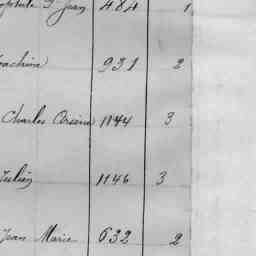 St Jean 484 1
Joachim 931 2
Charles Arsène 1144 3
Julien 1146 3
Jean Marie 632 2